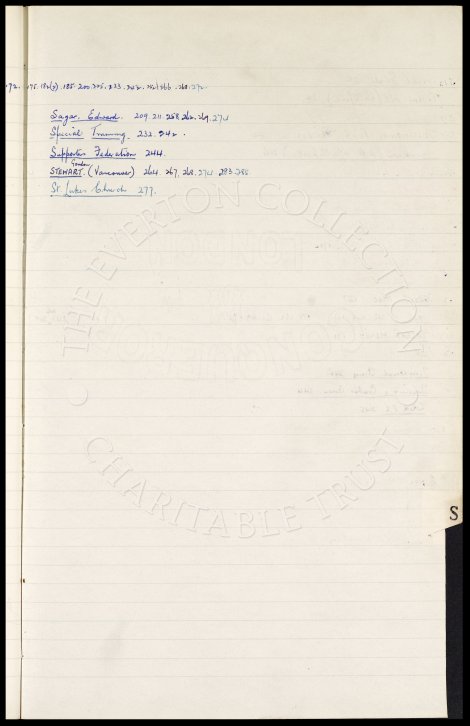 72. 175. 182(2). 185. 200. 225. 233. 242. 268. 272.
Sagar, Edward. 209. 211. 258. 262. 269. 274
Special Training. 232. 242.
Supporters Federation 244.
Gordon
STEWART. (Vancouver) 264. 267. 268. 274 283. 285
St Lukes Church 277.
S
THE EVERTON COLLECTION
CHARITABLE TRUST